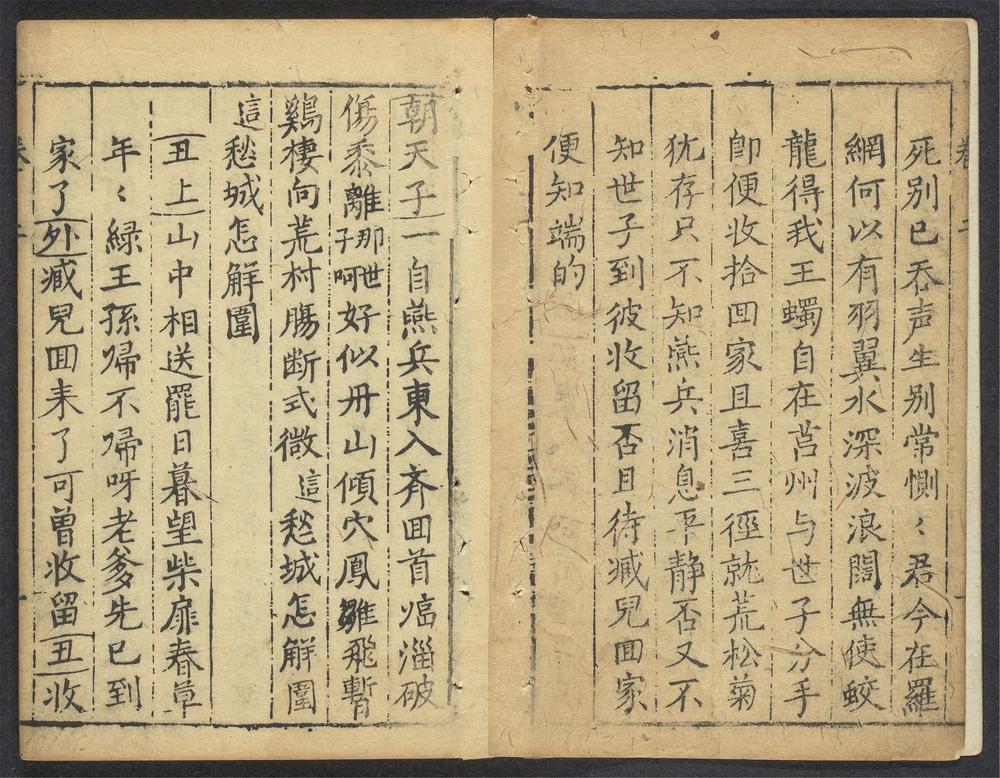 卷二
死别已吞声生别常惻〻君今在羅
網何以有羽翼水深波浪闊無使蛟
龍得我王蠋自在莒州与世子分手
即便收拾回家且喜三徑就荒松菊
犹存只不知燕兵消息平静否又不
知世子到彼收留否且待臧兒回家
便知端的
朝天子一自燕兵東入齐回首臨淄破
傷黍離那世子呵好似丹山傾穴鳳雛飛暫
鷄棲向荒村腸断式微這愁城怎解圍
這愁城怎解圍
丑上山中相送罷日暮望柴扉春草
年〻緑王孫帰不帰呀老爹先已到
家了外臧兒回来了可曾收留丑收